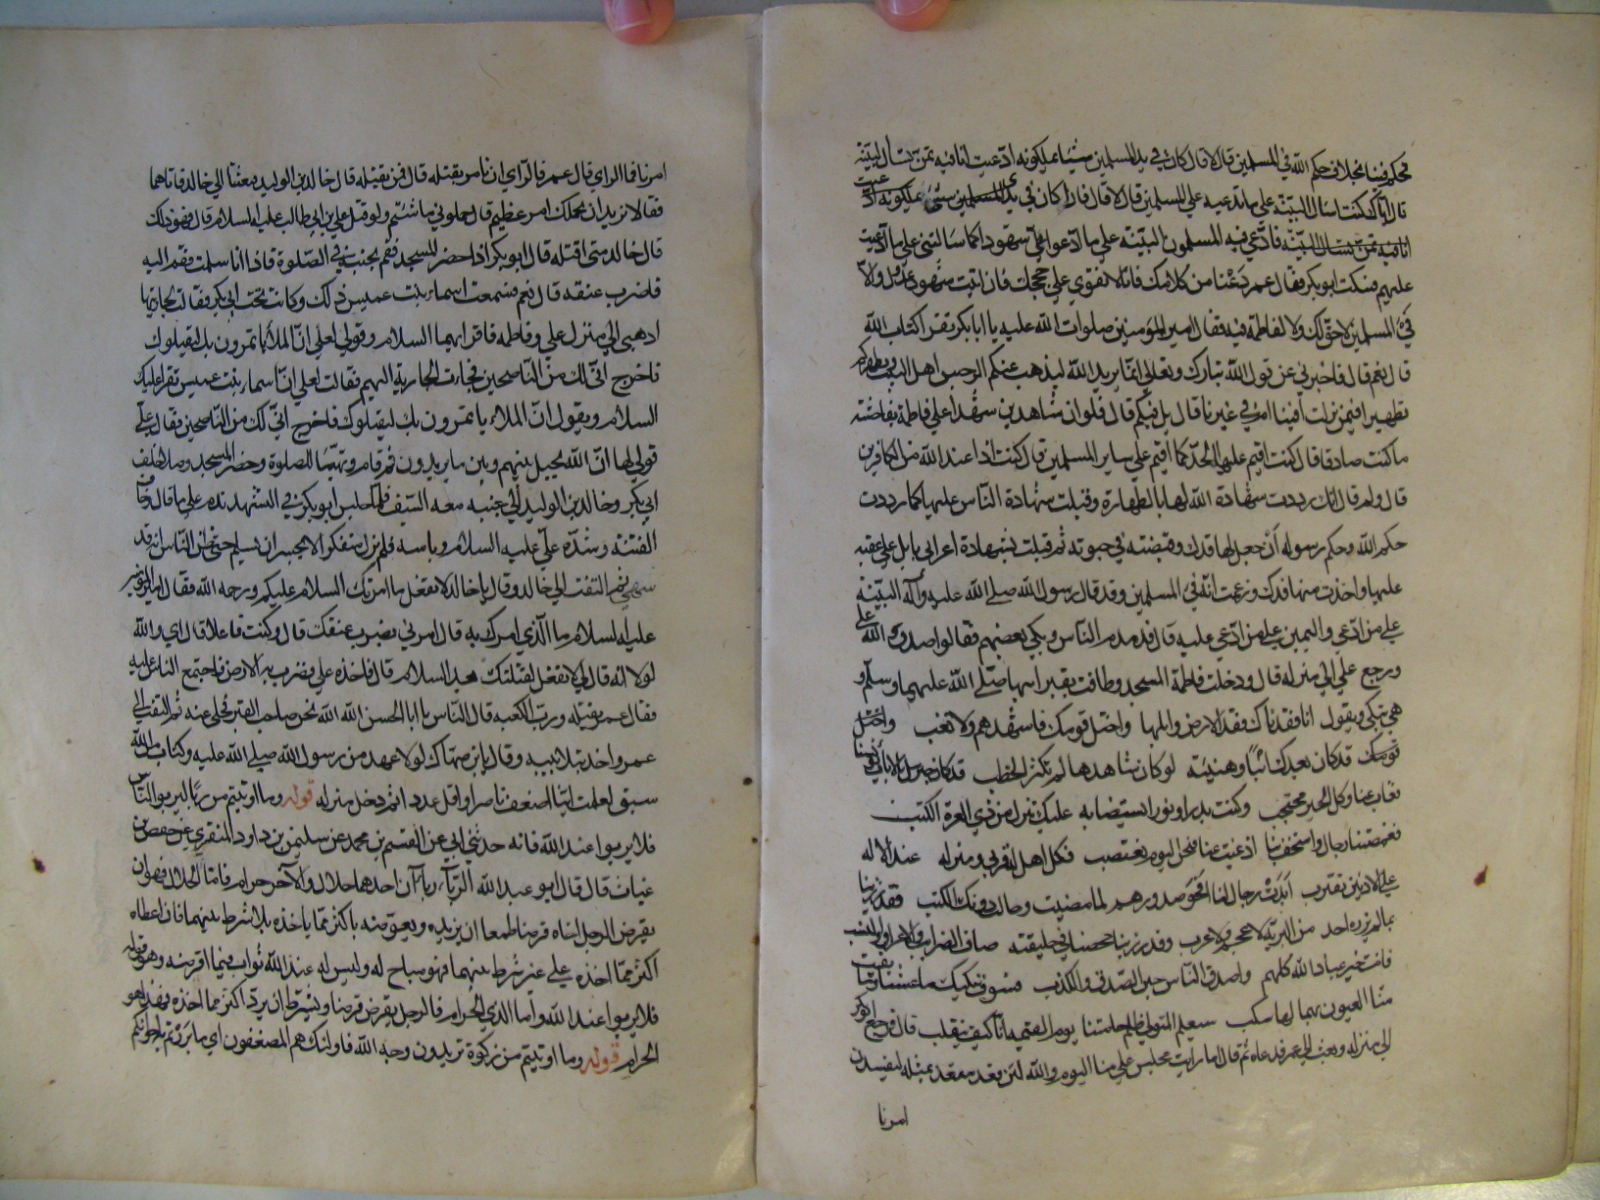 تحكم فينا بخلاف حكم الله في المسلمين قال لا قال كان في يد المسلمين شيئا يملكونه ادّعيت انا فيه ممّن تسأل البيّنة
قال ايّاك كنت اسأل البيّنة على ما تدعيه على المسلمين قال لا قال فاذا كان في يدي شيء المسلمين يملكونه ادّعيت
انا فيه ممن تسأل البيّنة فادّعي فيه المسلمون البيّنة على ما ادّعوا عليّ شهودا كما سألتني على ما ادّعيت
عليهم فسكت ابو بكر فقال عمر دَعْنا من كلامك فانّا لا نقوي على حججك فان اتيت شهود عدول والّا
فيء المسلمين لا حقّ لك ولا لفاطمة فيه فقال امير المؤمنين صلوات الله عليه يا ابا بكر تقرأ كتاب الله
قال نعم قال فاخبرني عن قول الله تبارك وتعالى انّما يريد الله ليذهب عنكم الرجس اهل البيت ويطهركم
تطهيرا فيمن نزلت أفينا ام في غيرنا قال بل فيكم قال فلو ان شاهدين شهدا على فاطمة بفاحشة
ما كنت صانعا قال كنت اقيم عليها الحدّ كما اقيم على ساير المسلمين قال كنت اذا عند الله من الكافرين
قال ولم قال لانك رددت شهادة الله لها بالطهارة وقبلت شهادة الناس عليها كما رددت
حكم الله وحكم رسوله أن جعل لها فدك وقبضته في حيوته ثم قبلت شهادة اعرابي بايل على عقبه
عليها واخذت منها فدك وزعمت انّه فيء المسلمين وقد قال رسول الله صلى الله عليه وآله البيّنة
على من ادّعي واليمين على من ادّعي عليه قال فدمدم الناس وبكى بعضهم فقالوا صدق والله علي
ورجع علي الى منزله قال ودخلت فاطمة المسجد وطافت بقبر ابيها صلى الله عليهما وسلّم و
هي تبكي ويقول انا فقدناك فقد الارض وابلها واختل قومك فاشهدهم ولا تغب
قد كان بعدك انبأ وهنبثة لو كان شاهدها لم تكثر الخطب قد كان جبريل بالايات يونسنا
فغاب عنا وكل الخير محتجب وكنت بدرا ونورا يستضا به عليك تنزل من ذي العزة الكتب
فغمصتنا رجال واستخف بنا اذ غبت عنا فنحن اليوم نغتصب فكل اهل له قربى ومنزلة عند الاله
على الادنين تقترب أبدت رجال لنا نجوى صدورهم لما مضيت وحالت دونك الكتب فقد رزينا
بما لم يرزه احد من البرية لا عجم ولا عرب وقد رزينا به محضا في خليقته صافي الضرايب والاعراق والنسب
فانت خير عباد الله كلهم واصدق الناس حين الصدق والكذب فسوف نبكيك ما عشنا وما بقيت
منّا العيون بهمال لها سكب سيعلم المتولي ظلم حامتنا يوم القيمة أنّا كيف ينقلب قال فرجع ابو بكر
الى منزله وبعث الى عمر فدعاه ثم قال اما رايت مجلس علي منا اليوم والله لئن قعد مقعد مثله ليفسدن
امرنا
امرنا فما الراي قال عمر فالراي ان نامر بقتله قال فمن يقتله قال خالد بن الوليد فبعثنا الى خالد فاتاهما
فقالا نريد ان نحملك امر عظيم قال حملوني ما شئتم ولو قتل علي بن ابي طالب عليه السلام قال فهو ذلك
قال خالد متى اقتله قال ابو بكر اذا حضر المسجد فقم بجنبه في الصلوة فاذا انا سلمت فقم اليه
فاضرب عنقه قال نعم فسمعت اسماء بنت عميس ذلك وكانت تحت ابي بكر فقالت لجاريتها
اذهبي الى منزل علي وفاطمه فاقرايهما السلام وقولي لعلي انّ الملأ ياتمرون بك ليقتلوك
فاخرج انّي لك من النّاصحين فجاءت الجارية اليهم فقالت لعلي انّ اسماء بنت عميس تقرأ عليك
السلام ويقول انّ الملاء ياتمرون بك ليقتلوك فاخرج انّي لك من النّاصحين فقال عليّ
قولي لها انّ الله يحيل بينهم وبين ما يريدون ثم قام وتهيّا للصلوة وحضر المسجد وصلا خلف
ابي بكر وخالد بن الوليد الي جنبه معه السّيف فلما جلس ابو بكر في التشهد ندم على ما قال وخاف
الفتنة وشدّه عليّ عليه السلام وباسه فلم يزل متفكرا لا يجسر ان يسلم حتى ظن الناس انه قد
سهى ثم التفت الى خالد وقال يا خالد لا تفعل ما امرتك السلام عليكم ورحمة الله فقال امير المؤمنين
عليه السلام ما الّذي امرك به قال امرني بضرب عنقك قال وكنت فاعلا قال اي والله
لولا انّه قال لي لا تفعل لقتلتك بعد السلام قال فاخذه علي فضرب به الارض فاجتمع الناس عليه
فقال عمر يقتله وربّ الكعبه قال النّاس يا ابا الحسن الله الله بحق صاحب القبر فخلى عنه ثم التفت الى
عمر واخذ بتلابيبه وقال يا بن صهاك لولا عهد من رسول الله صلى الله عليه وكتاب من الله
سبق لعلمت ايّنا اضعف ناصرا واقل عددا ثم دخل منزله قوله وما اوتيتم من ربًا ليربو في اموال النّاس
فلا يربوا عند الله فانه حدثني ابي عن القسم بن محمد عن سليمن بن داود المنقري عن حفص بن
غياث قال قال ابو عبد الله الرّباء ربآان احدهما حلال والآخر حرام فامّا الحلال فهو ان
يقرض الرجل اخاه قرضا طمعا ان يزيده ويعوّضه باكثر ممّا ياخذه بلا شرط بينهما فان اعطاه
اكثر ممّا اخذه على غير شرط بينهما فهو مباح له وليس له عند الله ثواب فيما اقرضه وهو قوله
فلا يربوا عند الله وأما الذي الحرام فالرجل يقرض قرضا ويشرط ان يردّ اكثر مما اخذه فهذا هو
الحرام قوله وما اوتيتم من زكوة تريدون وجه الله فاولئك هم المضعفون اي ما بررتم به اخوانكم